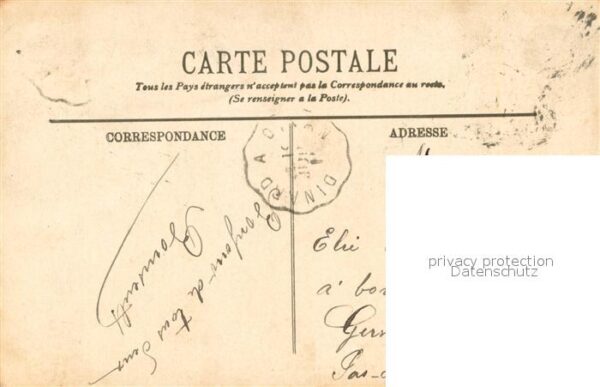 CARTE POSTALE
Tous les Pays étrangers n'acceptent pas la Correspondance au recto.
(Se renseigner a la Poste).
CORRESPONDANCE
ADRESSE
DINARD A
Bonjour de tous
Elie
à bo
Ger
Pas-
privacy protection
Datenschutz